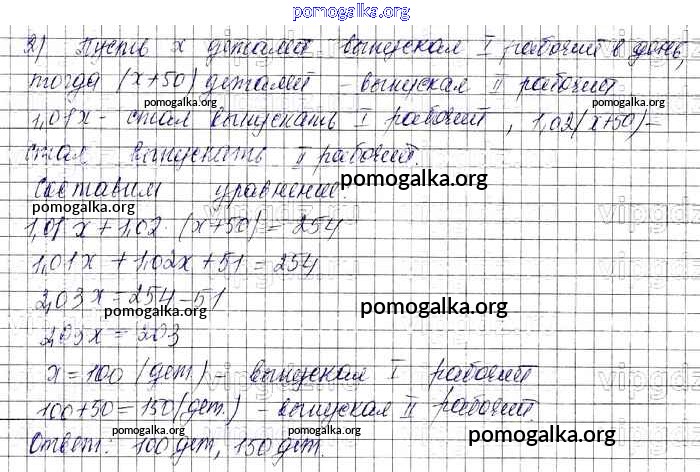 pomogalka.org
2) Пусть x деталей - выпускал I рабочий в день,
тогда (x+50) деталей - выпускал II рабочий
pomogalka.org pomogalka.org
1,01x - стал выпускать I рабочий, 1,02(x+50) -
стал выпускать II рабочий.
pomogalka.org
Составим уравнение:
pomogalka.org
1,01x + 1,02 · (x+50) = 254
1,01x + 1,02x + 51 = 254
2,03x = 254 - 51
pomogalka.org
2,03x = 203
x = 100 (дет) - выпускал I рабочий
100 + 50 = 150 (дет.) - выпускал II рабочий.
pomogalka.org
Ответ: 100 дет, 150 дет.
pomogalka.org